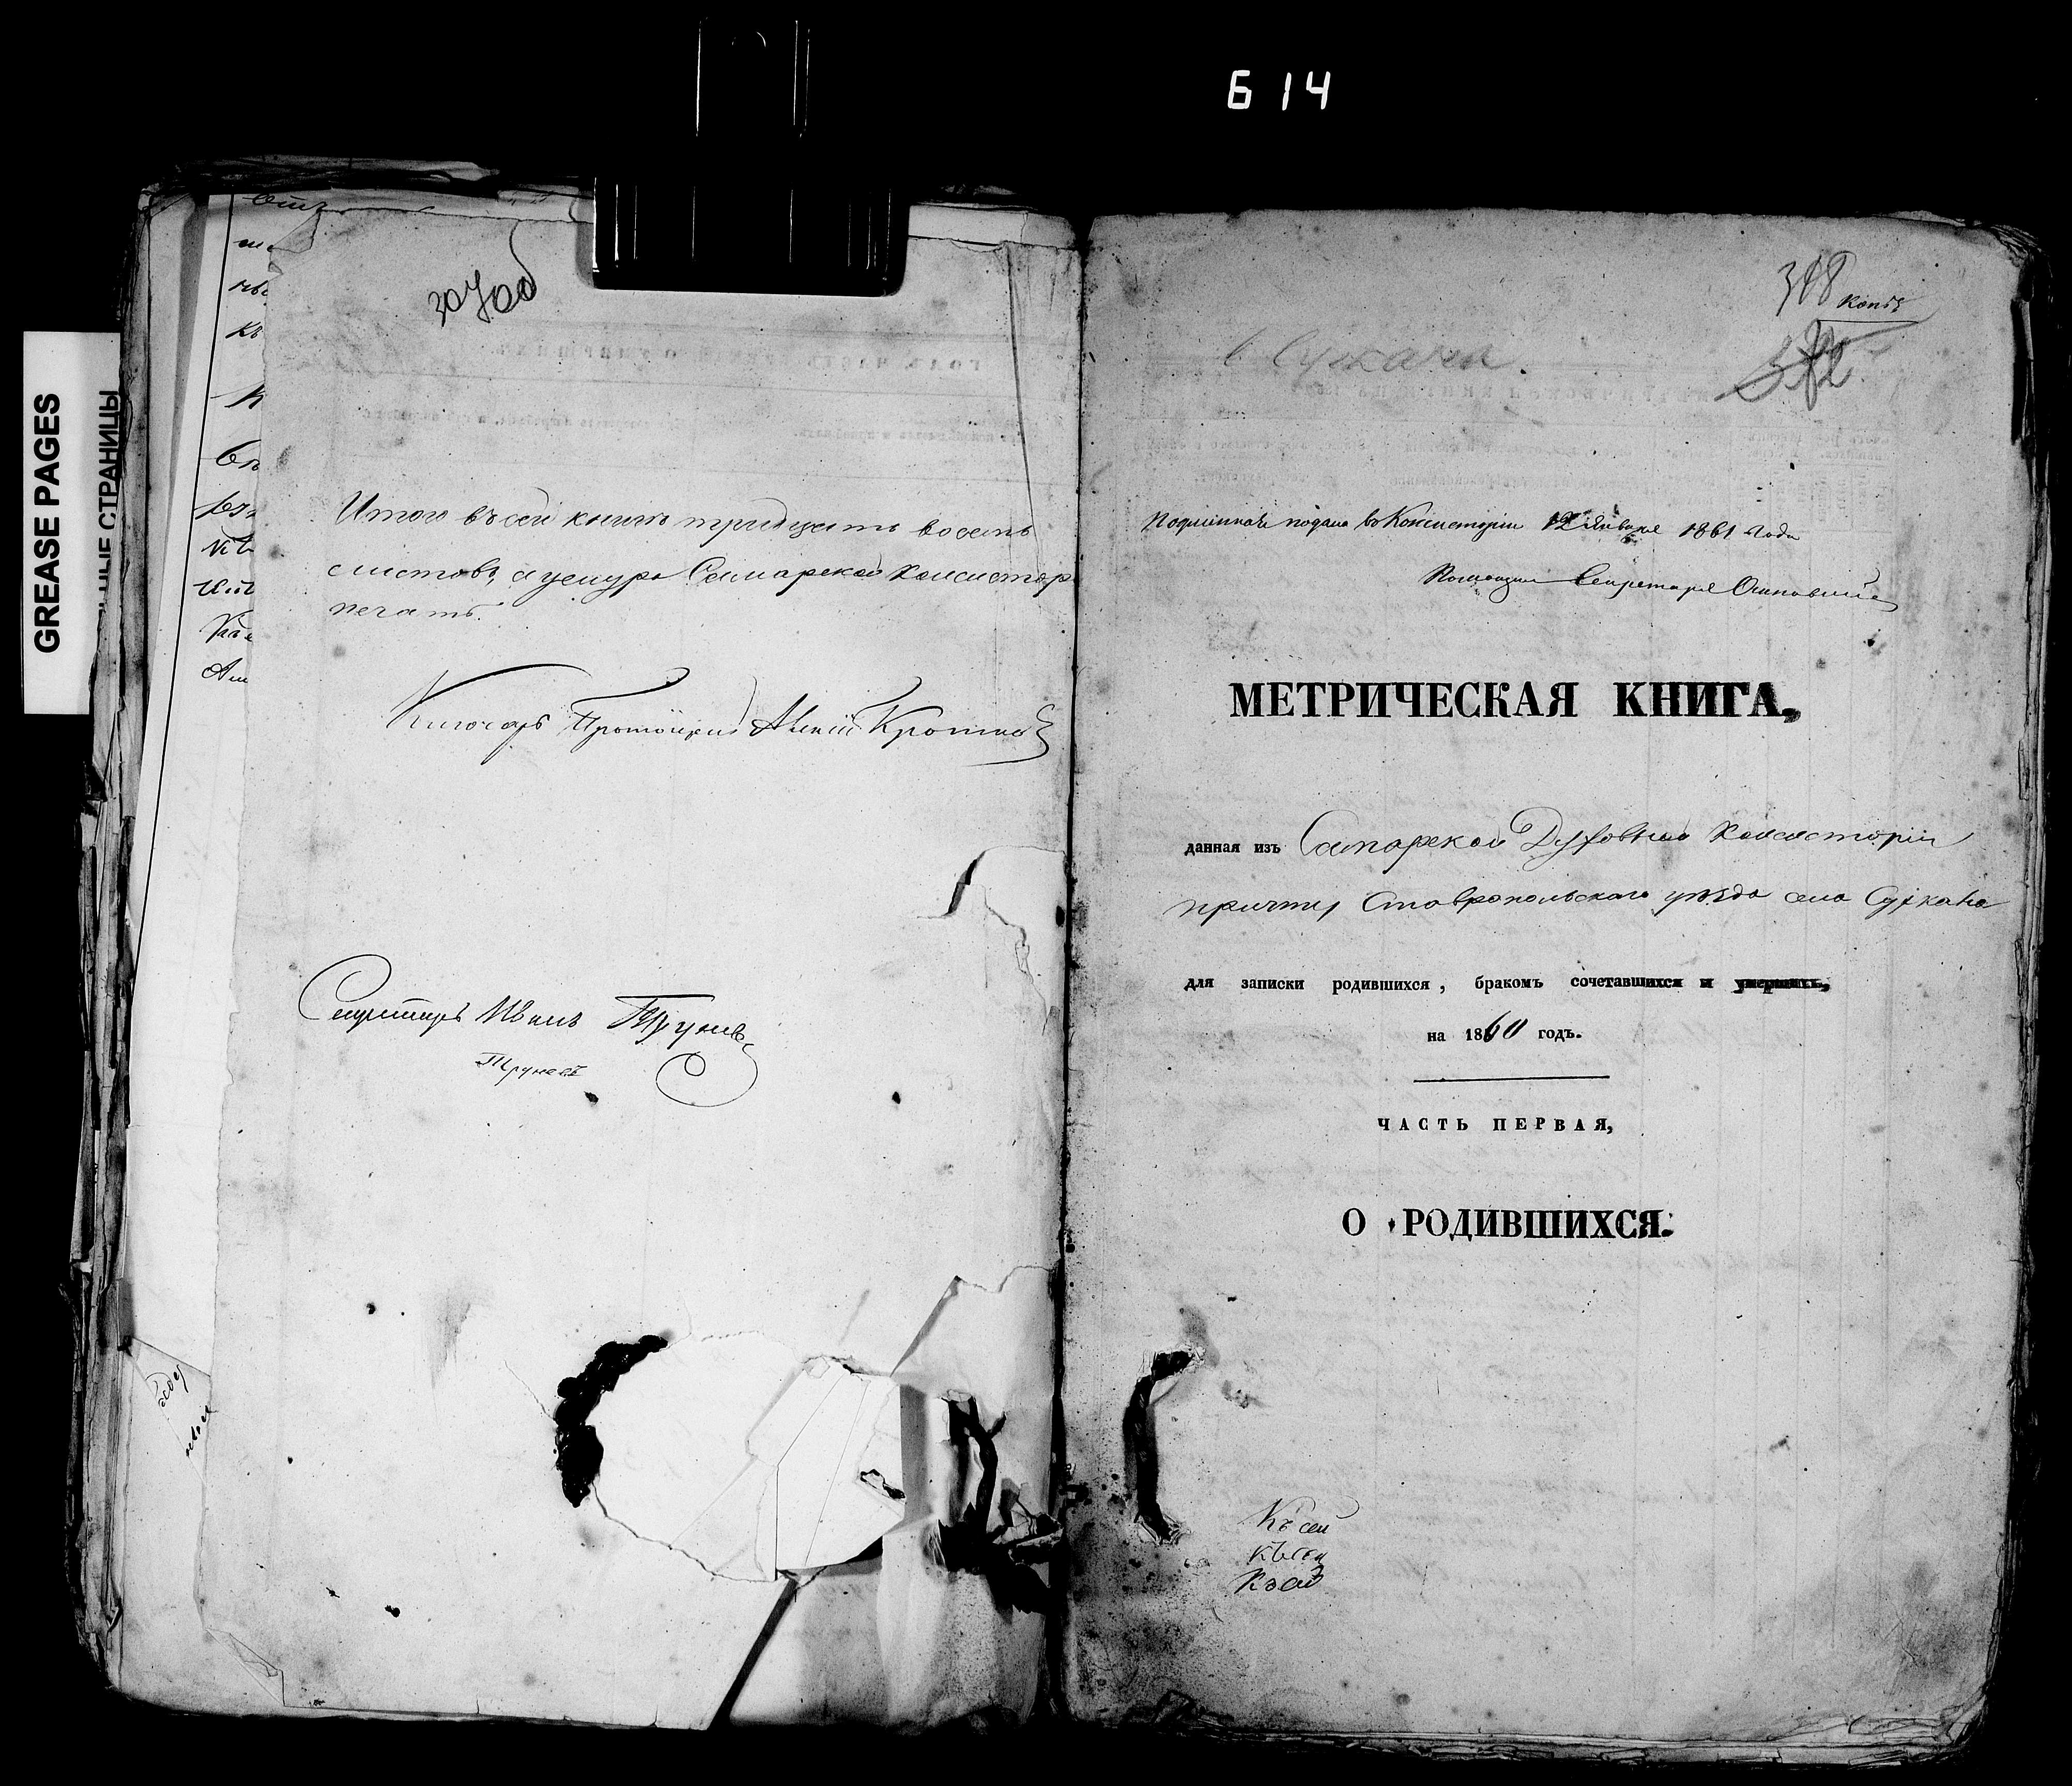 614
GREASE PAGES
НЫЕ СТРАНИЦЫ
307об
Итого въ сей книге тридцать восемь
листовъ, а у шнура Самарской Консистор
печать.
Ключарь Протоіерей Кротко
Секретарь Иванъ Труневъ
Труневъ
308
Копія
с Сускана.
Подлинная подана въ Консисторію 12 Января 1861 года
Помощникъ Секретаря
МЕТРИЧЕСКАЯ КНИГА,
данная изъ Самарской Духовной Консисторіи
причту Ставропольскаго уѣзда села Сускана
для записки родившихся, бракомъ сочетавшихся и умершихъ,
на 1860 годъ.
ЧАСТЬ ПЕРВАЯ,
О РОДИВШИХСЯ.
Къ сей
Къ сей
Къ сей